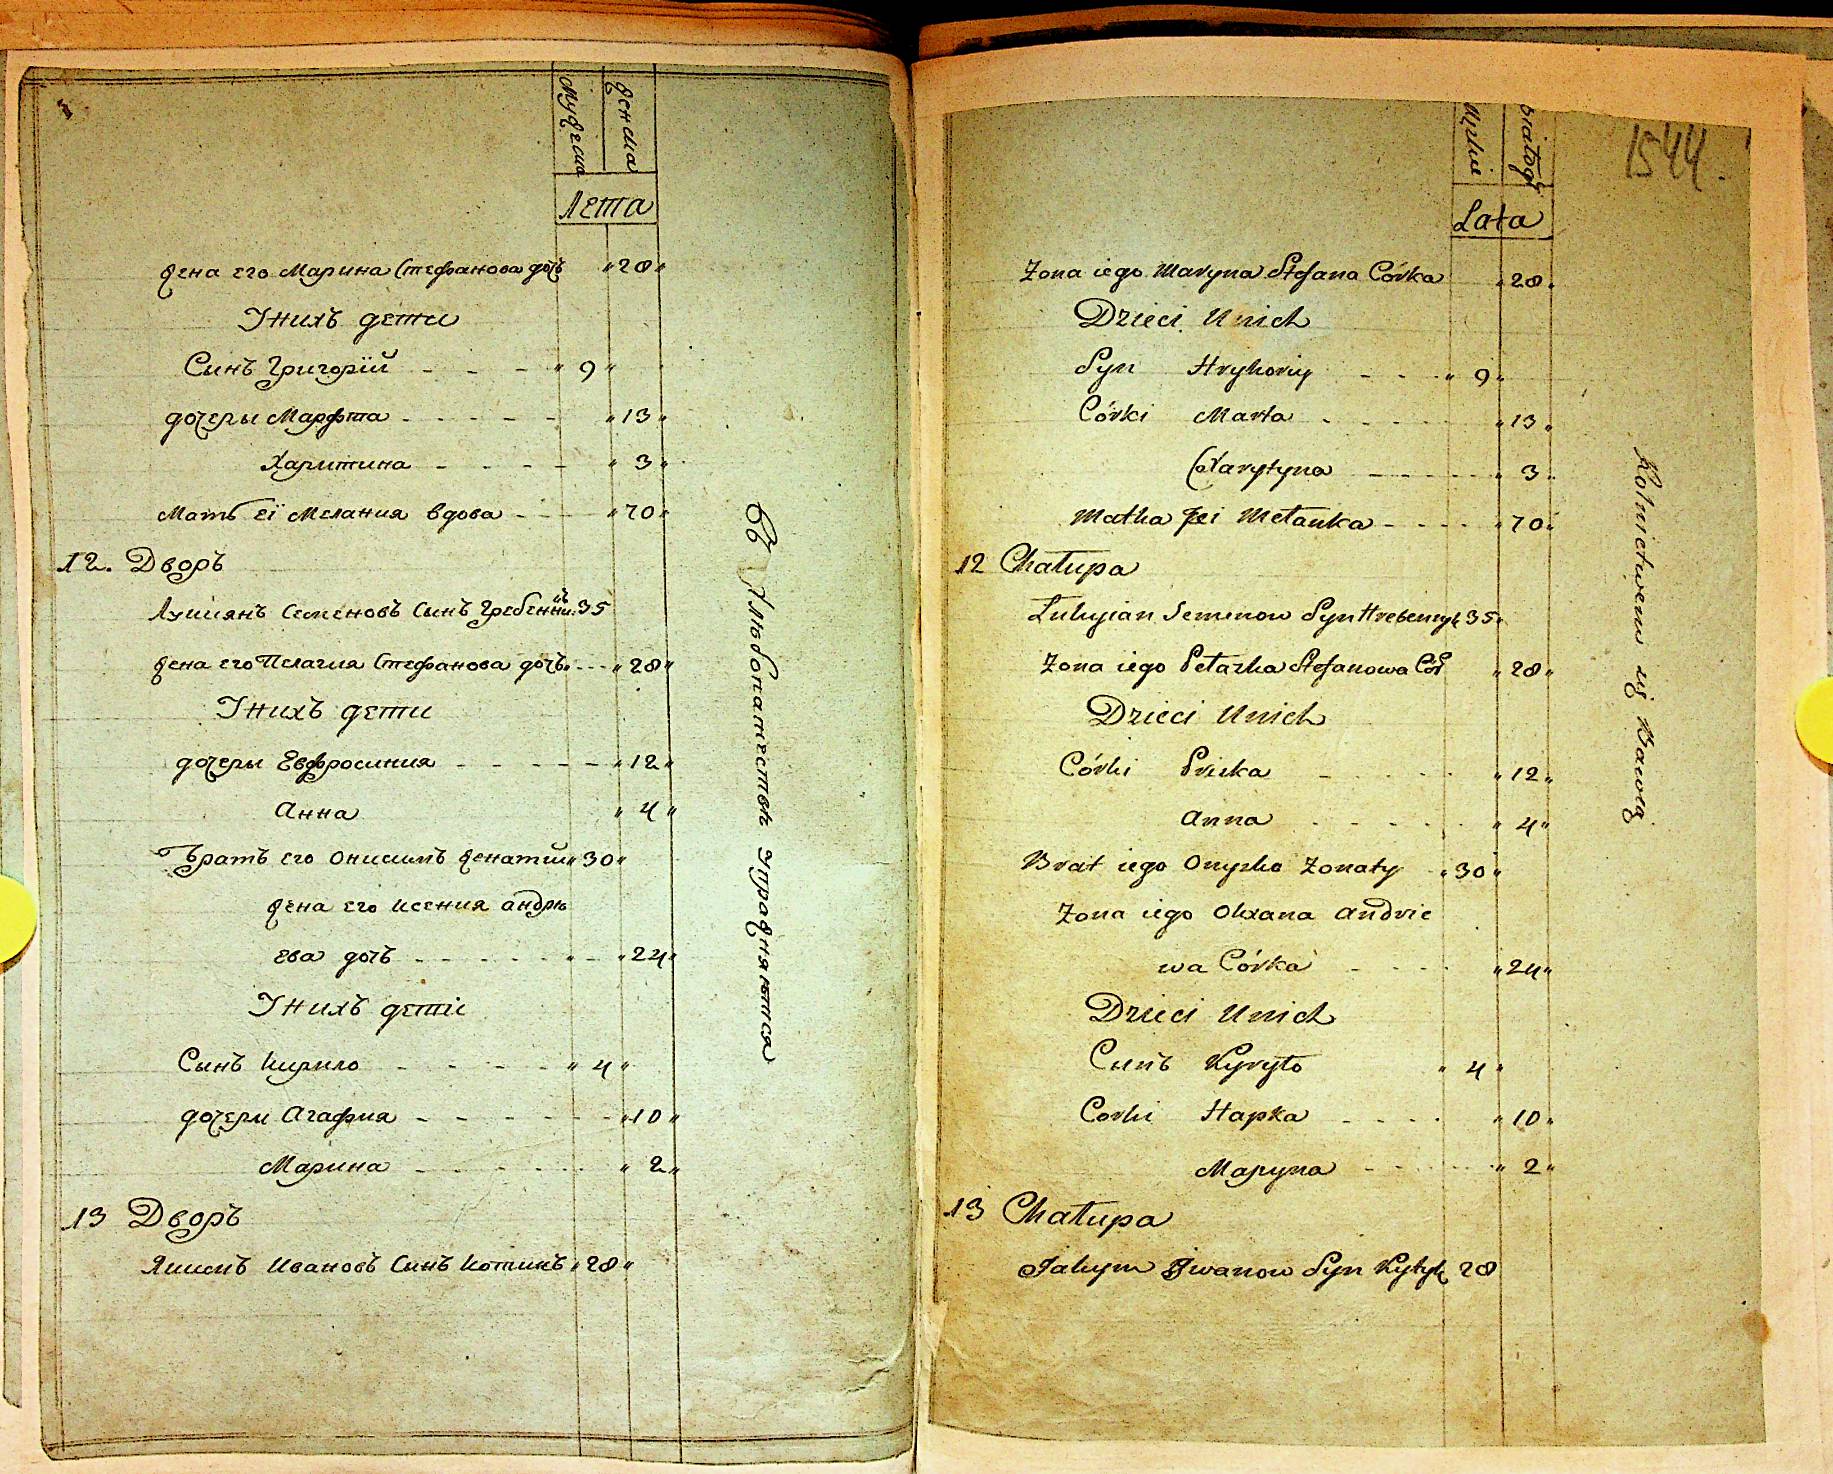 Мужеска
женска
Лета
жена его Марина Стефанова дочь „28„
У нихъ дети
Синъ Григорій - - - „ 9 „
дочеры Марфта - - - - - „13„
Харитина - - - - „ 3„
Мать еі Мелания вдова - - - „70„
12. Дворъ
Лукиянъ Семеновъ Сынъ Гребенникъ 35
жена его Пелагия Стефанова дочь - - - „28„
У нихъ дети
дочеры Евфросиния - - - - - „12„
Анна „ 4 „
Братъ его Онисимъ женатий „30„
жена его Ксения андрѣ
ева дочь - - - - - „ - „24„
У нихъ деті
Сынъ Кирило - - - - „ 4 „
дочери Агафия - - - - - - „10„
Марина - - - - - „ 2„
13 Дворъ
Якимъ Ивановъ Синъ Котикъ „28„
Въ Хлѣбопашествѣ Упражняются
1544.
Męzkie
Lata
Zona iego Maryna Stefana Córka „28„
Dzieci Unich
Syn Hryhoriy - - - „ 9„
Córki Marta - - - - - „13„
Charytyna - - - - „ 3„
Matka Jei Mełanka - - - - „70„
12 Chałupa
Łukyian Semenow Syn Hrebennyk 35„
Zona iego Pełazka Stefanowa Cór „28„
Dzieci Unich
Córki Priska - - - - „12„
Anna - - - - - „4„
Brat iego Onyzko Zonaty „30„
Zona iego Oxana Andrie
wa Córka - - - „24„
Dzieci Unich
Сынъ Kyryło „ 4 „
Corki Hapka - - - - „10„
Маруna - - - - - „ 2„
13 Chałupa
Jakym Iwanow Syn Kytyk 28
Rolnictwem się Bawią